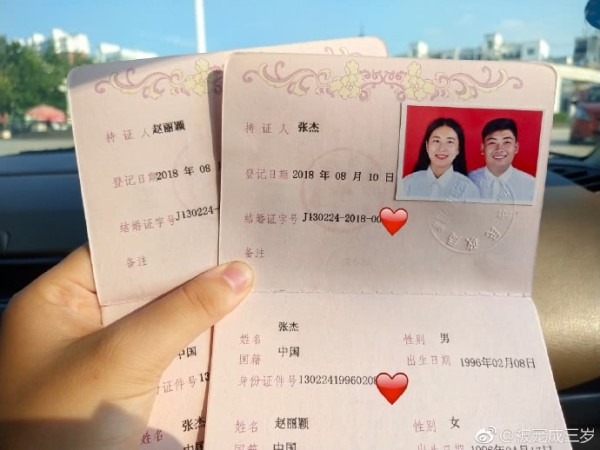 持证人 赵丽颖
登记日期 2018 年 08
结婚证字号 J130224
备注
中国
身份证件号 13
姓名 张杰
持证人 张杰
登记日期 2018 年 08 月 10 日
结婚证字号 J130224-2018-00
备注
姓名 张杰 性别 男
国籍 中国 出生日期 1996年02月08日
身份证件号 13022419960208
姓名 赵丽颖 性别 女
国籍 中国
@被宠成三岁